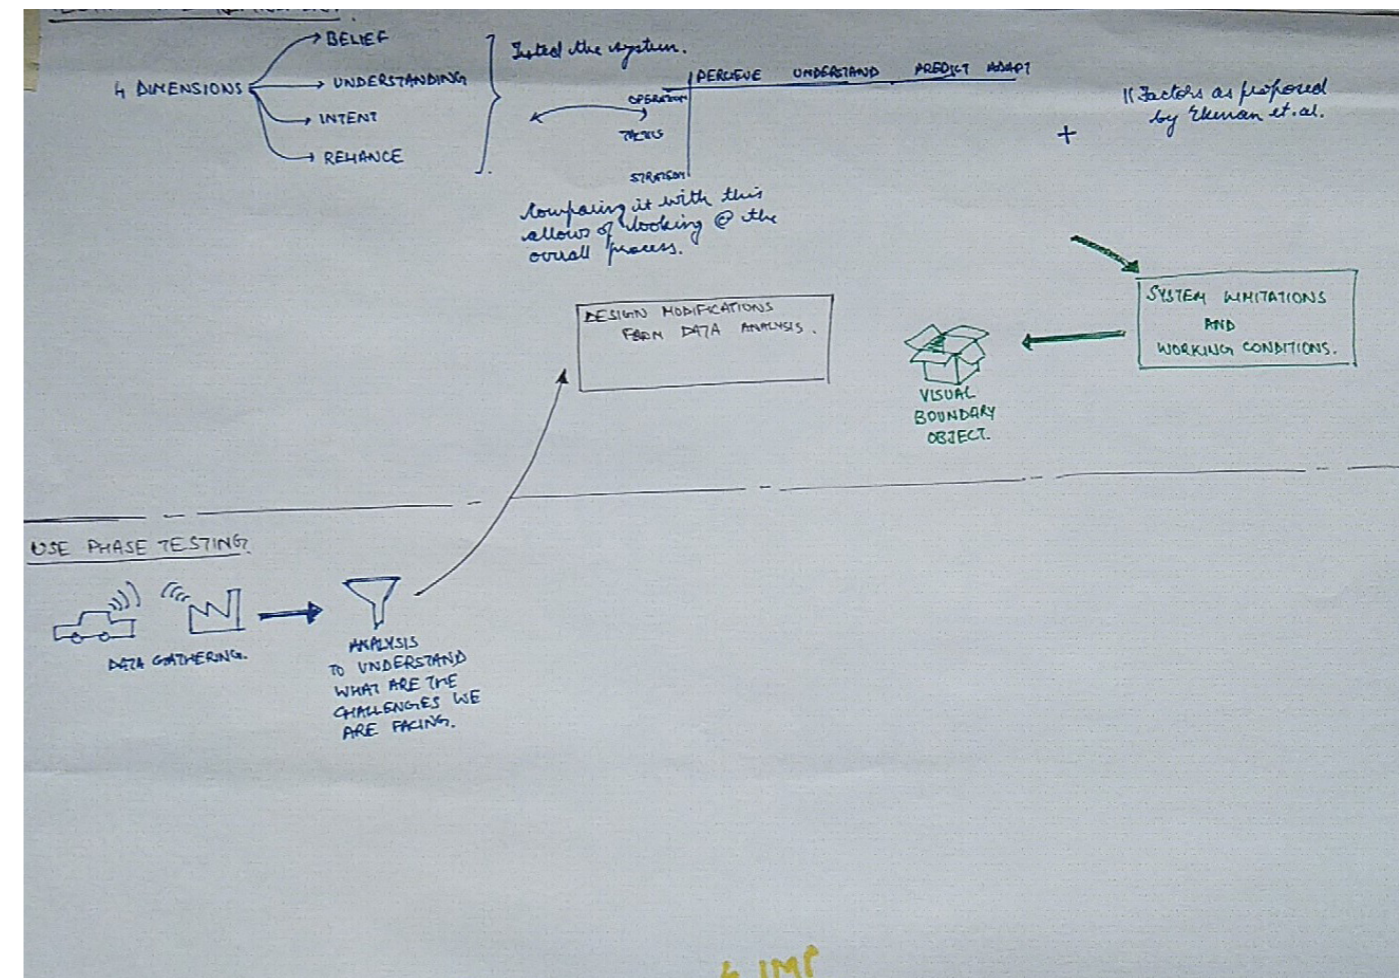 BELIEF
4 DIMENSIONS
UNDERSTANDING
INTENT
RELIANCE
Tested the system.
PERCIEVE UNDERSTAND PREDICT ADAPT
OPERATION
STRATEGY
Comparing it with this
allows of looking @ the
overall process.
+
11 Factors as proposed
by Ekman et.al.
SYSTEM LIMITATIONS
AND
WORKING CONDITIONS.
DESIGN MODIFICATIONS
FROM DATA ANALYSIS.
VISUAL
BOUNDARY
OBJECT.
USE PHASE TESTING.
DATA GATHERING.
ANALYSIS
TO UNDERSTAND
WHAT ARE THE
CHALLENGES WE
ARE FACING.
IMP